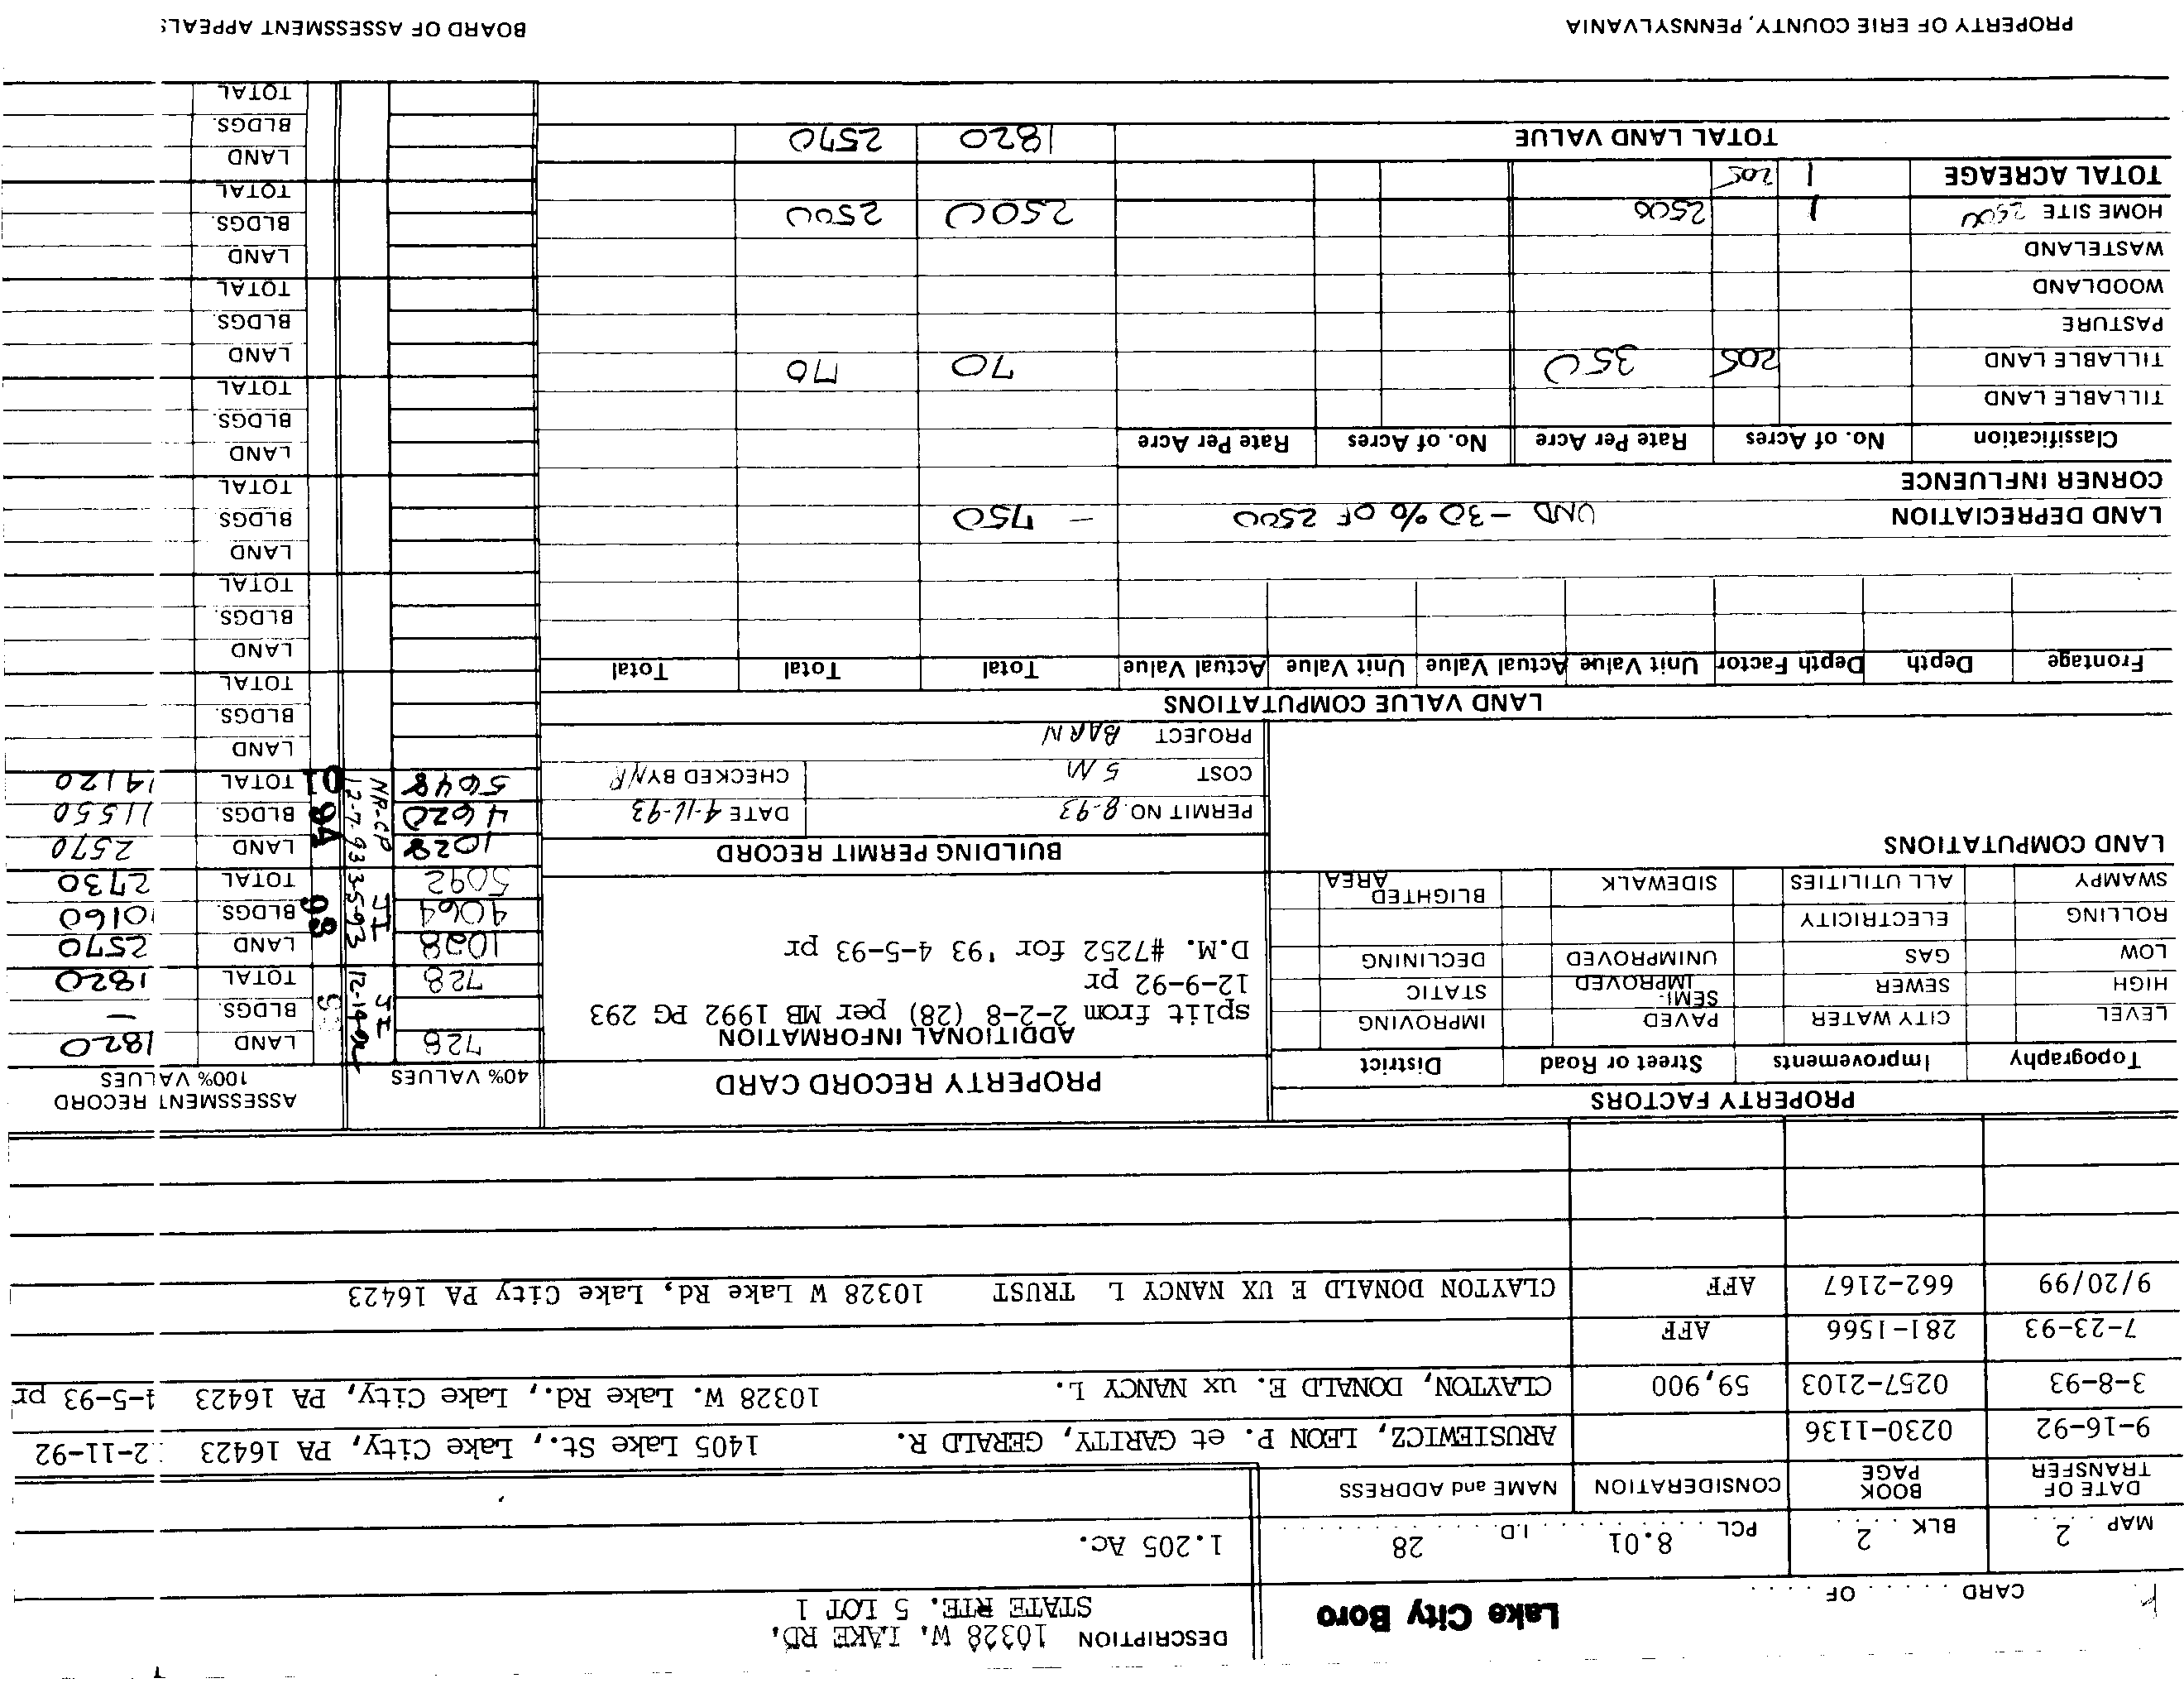 DESCRIPTION 10328 W. LAKE RD.
STATE RTE. 5 LOT 1
CARD . . . . . OF . . . . . Lake City Boro
MAP 2 BLK 2 PCL 8.01 I.D. 28 1.205 Ac.
DATE OF TRANSFER BOOK PAGE CONSIDERATION NAME and ADDRESS
9-16-92 0230-1136 ARUSIEWICZ, LEON P. et GARITY, GERALD R. 1405 Lake St., Lake City, PA 16423 2-11-92
3-8-93 0257-2103 59,900 CLAYTON, DONALD E. ux NANCY L. 10328 W. Lake Rd., Lake City, PA 16423 4-5-93 pr
7-23-93 281-1566 AFF
9/20/99 662-2167 AFF CLAYTON DONALD E UX NANCY L TRUST 10328 W Lake Rd, Lake City PA 16423
PROPERTY FACTORS
Topography Improvements Street or Road District
LEVEL CITY WATER PAVED IMPROVING
HIGH SEWER SEMI-IMPROVED STATIC
LOW GAS UNIMPROVED DECLINING
ROLLING ELECTRICITY
SWAMPY ALL UTILITIES SIDEWALK BLIGHTED AREA
LAND COMPUTATIONS
PROPERTY RECORD CARD
ADDITIONAL INFORMATION
split from 2-2-8 (28) per MB 1992 PG 293
12-9-92 pr
D.M. #7252 for '93 4-5-93 pr
BUILDING PERMIT RECORD
PERMIT NO. 8-93 DATE 4-16-93
COST 5 M CHECKED BY NR
PROJECT BARN
40% VALUES ASSESSMENT RECORD 100% VALUES
728 JI 12-14-92 LAND 1820
BLDGS. —
728 TOTAL 1820
1028 JI 3-5-93 93 LAND 2570
4064 BLDGS. 10160
5092 TOTAL 12730
1028 NR-CP 12-7-93 94 LAND 2570
4620 BLDGS. 11550
5648 01 TOTAL 14120
LAND
BLDGS.
TOTAL
LAND
BLDGS.
TOTAL
LAND
BLDGS
TOTAL
LAND
BLDGS.
TOTAL
LAND
BLDGS.
TOTAL
LAND
BLDGS.
TOTAL
LAND
BLDGS.
TOTAL
LAND VALUE COMPUTATIONS
Frontage Depth Depth Factor Unit Value Actual Value Unit Value Actual Value Total Total Total
LAND DEPRECIATION UND -30% OF 2500 - 750
CORNER INFLUENCE
Classification No. of Acres Rate Per Acre No. of Acres Rate Per Acre
TILLABLE LAND
TILLABLE LAND 205 350 70 70
PASTURE
WOODLAND
WASTELAND
HOME SITE 2500 1 2500 2500 2500
TOTAL ACREAGE 1 205
TOTAL LAND VALUE 1820 2570
PROPERTY OF ERIE COUNTY, PENNSYLVANIA BOARD OF ASSESSMENT APPEALS